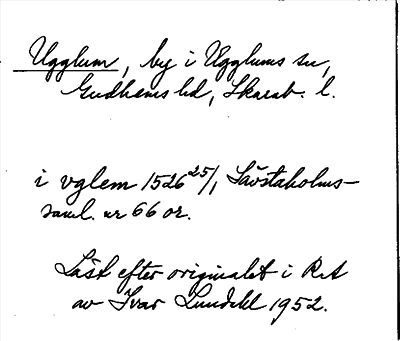 Ugglum, by i Ugglums sn,
Gudhems hd, Skarab. l.
i vglem 1526 25/1, Sävstaholms-
saml. nr 66 or.
Läst efter originalet i RA
av Ivar Lundahl 1952.